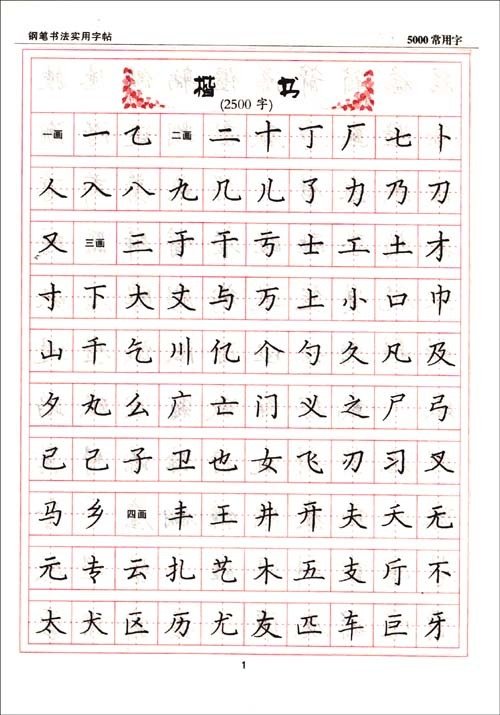 钢笔书法实用字帖 5000常用字
楷书
(2500字)
一画 一 乙 二画 二 十 丁 厂 七 卜
人 入 八 九 几 儿 了 力 乃 刀
又 三画 三 于 干 亏 士 工 土 才
寸 下 大 丈 与 万 上 小 口 巾
山 千 乞 川 亿 个 勺 久 凡 及
夕 丸 么 广 亡 门 义 之 尸 弓
已 己 子 卫 也 女 飞 刃 习 叉
马 乡 四画 丰 王 井 开 夫 天 无
元 专 云 扎 艺 木 五 支 厅 不
太 犬 区 历 尤 友 匹 车 巨 牙
1